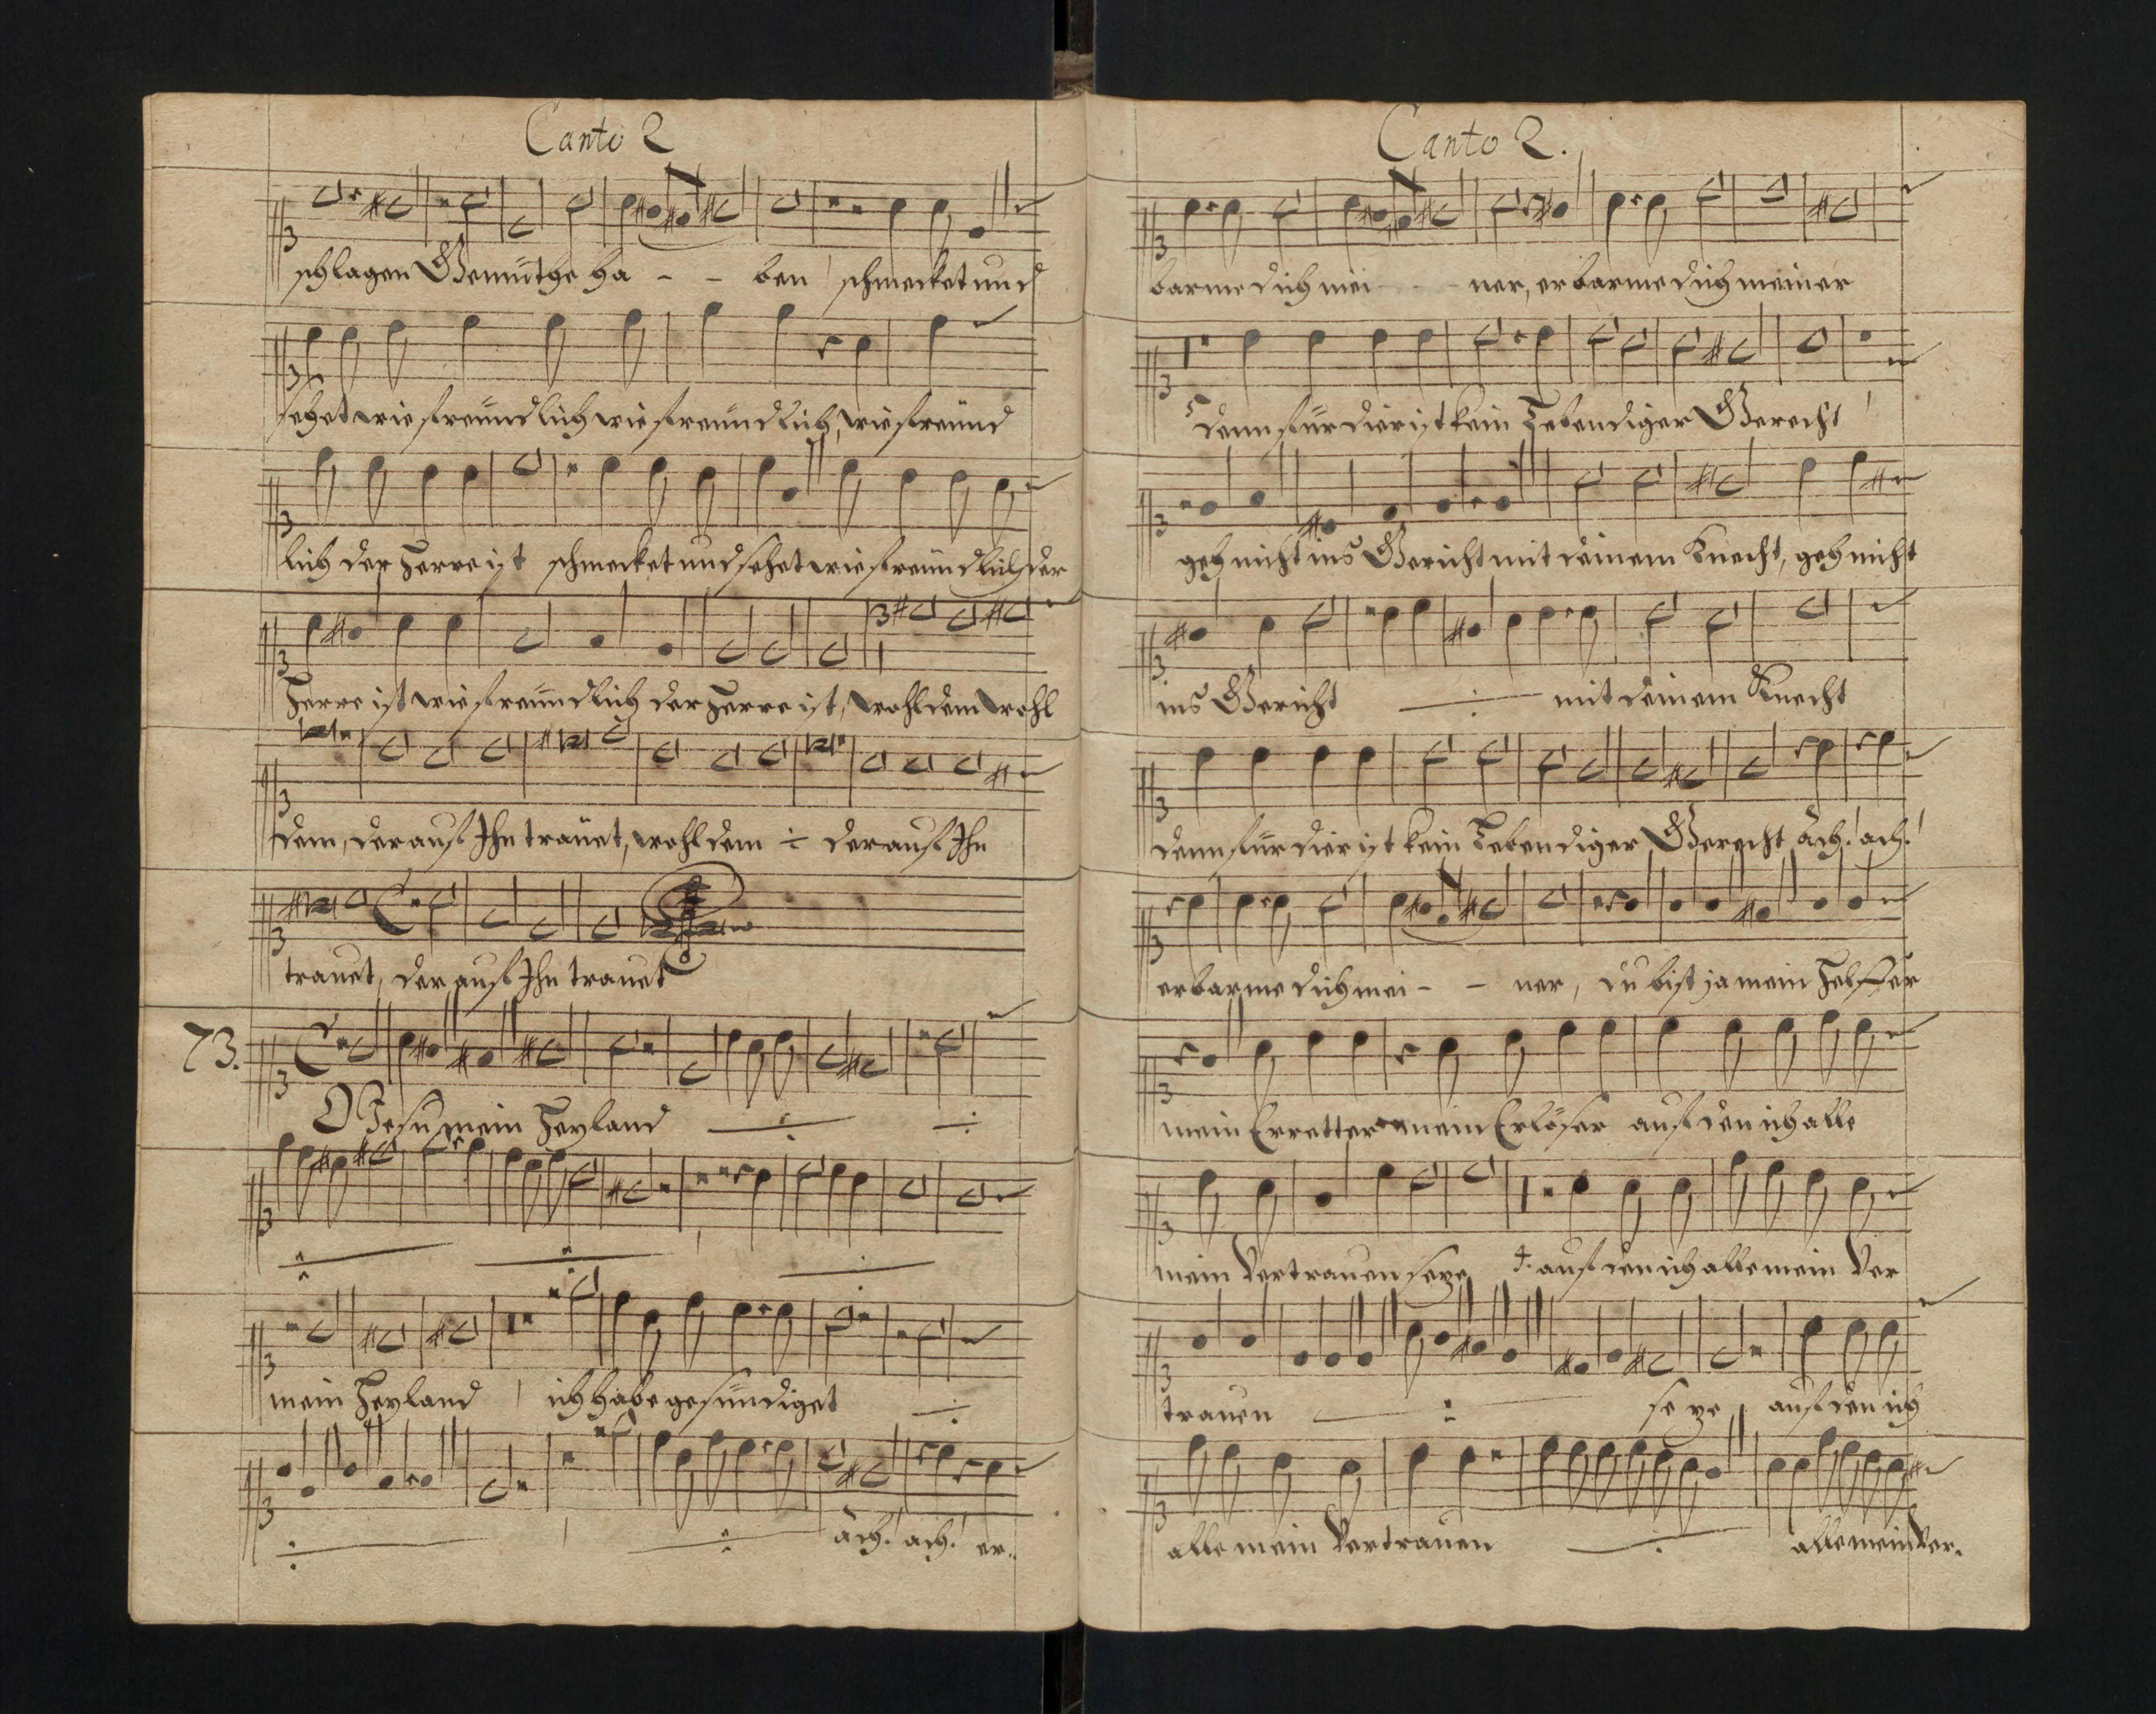 Canto 2
schlagen Gemüthe ha - - ben schmecket und
sehet wie freündlich wie freündlich, wie freünd
lich der Herre ist schmecket und sehet wie freündlich der
Herre ist wie freündlich der Herre ist, wohl dem wohl
dem, der auf Ihn trauet, wohl dem ÷ der auf Ihn
trauet, der auf Ihn trauet
73.
O Jesu mein Heyland ÷ ÷
mein Heyland ich habe gesündiget ÷
ach! ach! er-
Canto 2.
barme dich mei - - ner, erbarme dich meiner
denn für dier ist kein Lebendiger Gerecht
geh nicht ins Gericht mit deinem Knecht, geh nicht
ins Gericht ÷ mit deinem Knecht
denn für dier ist kein Lebendiger Gerecht ach! ach!
erbarme dich mei - - ner, du bist ja mein Helffer
mein Erretter mein Erlöser auf den ich alle
mein Vertrauen seze auf den ich alle mein Ver
trauen ÷ seze, auf den ich
alle mein Vertrauen ÷ alle mein Ver-